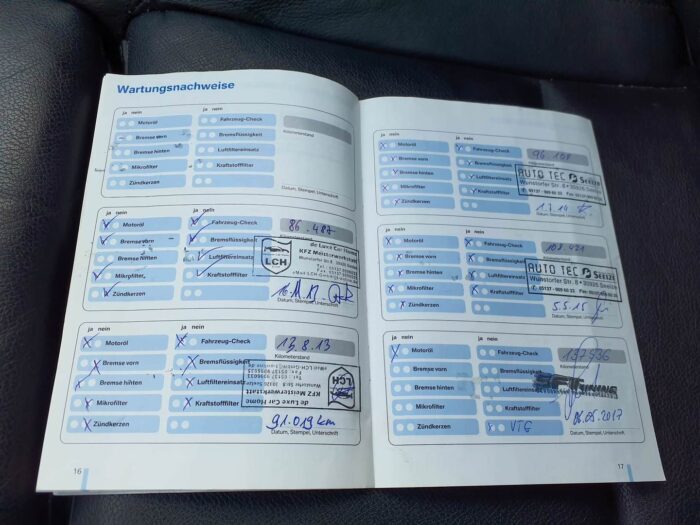 Wartungsnachweise
ja nein ja nein
Motoröl Fahrzeug-Check
Bremse vorn Bremsflüssigkeit Kilometerstand
Bremse hinten Luftfiltereinsatz
Mikrofilter Kraftstofffilter
Zündkerzen
Datum, Stempel, Unterschrift
ja nein ja nein
Motoröl Fahrzeug-Check 86.487
Bremse vorn Bremsflüssigkeit
Bremse hinten Luftfiltereinsatz
Mikrofilter Kraftstofffilter
Zündkerzen
de Luxe Car Home
KFZ Meisterwerkstatt
LCH
Datum, Stempel, Unterschrift
ja nein ja nein
Motoröl Fahrzeug-Check 13.8.13
Bremse vorn Bremsflüssigkeit Kilometerstand
Bremse hinten Luftfiltereinsatz
Mikrofilter Kraftstofffilter
Zündkerzen
LCH
KFZ Meisterwerkstatt
de Luxe Car Home
91.019 km
Datum, Stempel, Unterschrift
16
ja nein ja nein
Motoröl Fahrzeug-Check 96.108
Bremse vorn Bremsflüssigkeit Kilometerstand
Bremse hinten Luftfiltereinsatz
Mikrofilter Kraftstofffilter
Zündkerzen
AUTO TEC SEELZE
Wunstorfer Str. 8 • 30926 Seelze
1.7.14
Datum, Stempel, Unterschrift
ja nein ja nein
Motoröl Fahrzeug-Check
Bremse vorn Bremsflüssigkeit Kilometerstand
Bremse hinten Luftfiltereinsatz
Mikrofilter Kraftstofffilter
Zündkerzen
AUTO TEC SEELZE
Wunstorfer Str. 8 • 30926 Seelze
5.5.15
Datum, Stempel, Unterschrift
ja nein ja nein
Motoröl Fahrzeug-Check 137536
Bremse vorn Bremsflüssigkeit Kilometerstand
Bremse hinten Luftfiltereinsatz
Mikrofilter Kraftstofffilter
Zündkerzen VTG
06.05.2017
Datum, Stempel, Unterschrift
17